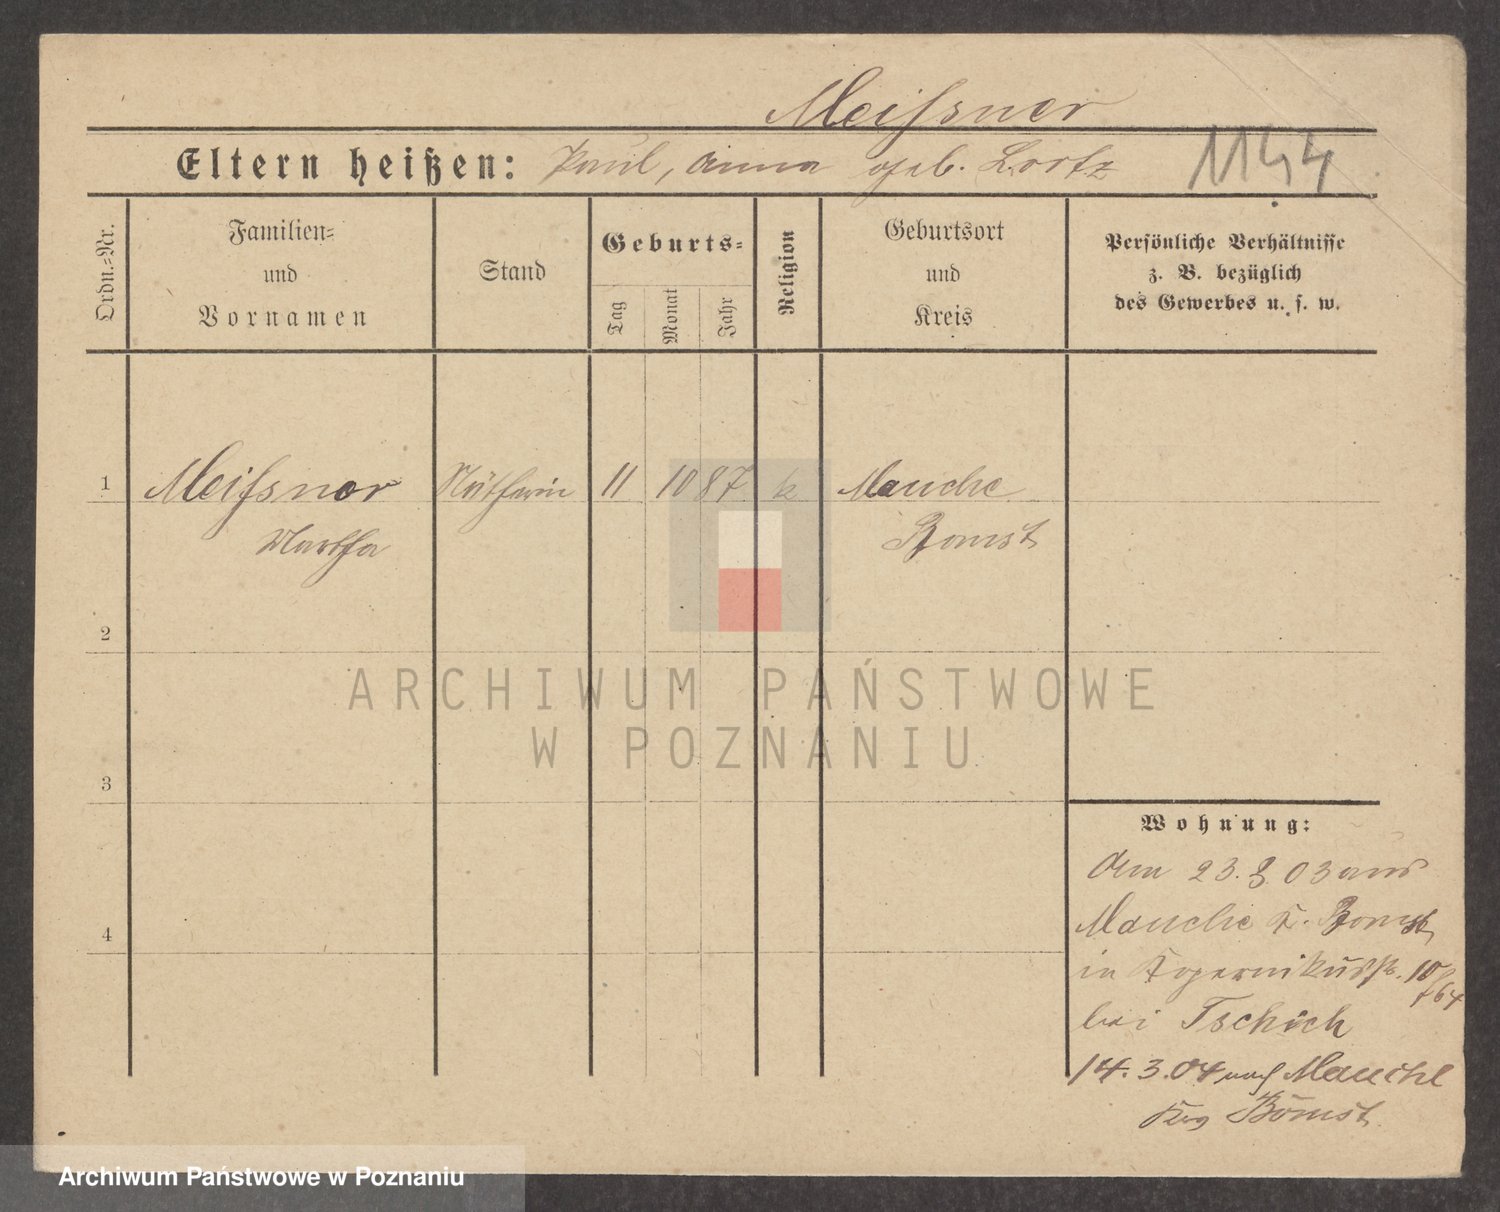 Meißner
Eltern heißen: Paul, Anna geb. Lortz
1144
Ordn.=Nr.
Familien=
und
Vornamen
Stand
Geburts=
Tag
Monat
Jahr
Religion
Geburtsort
und
Kreis
Persönliche Verhältnisse
z. B. bezüglich
des Gewerbes u. s. w.
1 Meißner Nätherin 11 10 87 k Mauche
Martha Bomst
2
3
4
Wohnung:
Am 23. 9. 03 aus
Mauche K. Bomst
in Kopernikusstr. 10
bei Tschich
14. 3. 04 nach Mauche
Bomst
ARCHIWUM PAŃSTWOWE
W POZNANIU
Archiwum Państwowe w Poznaniu